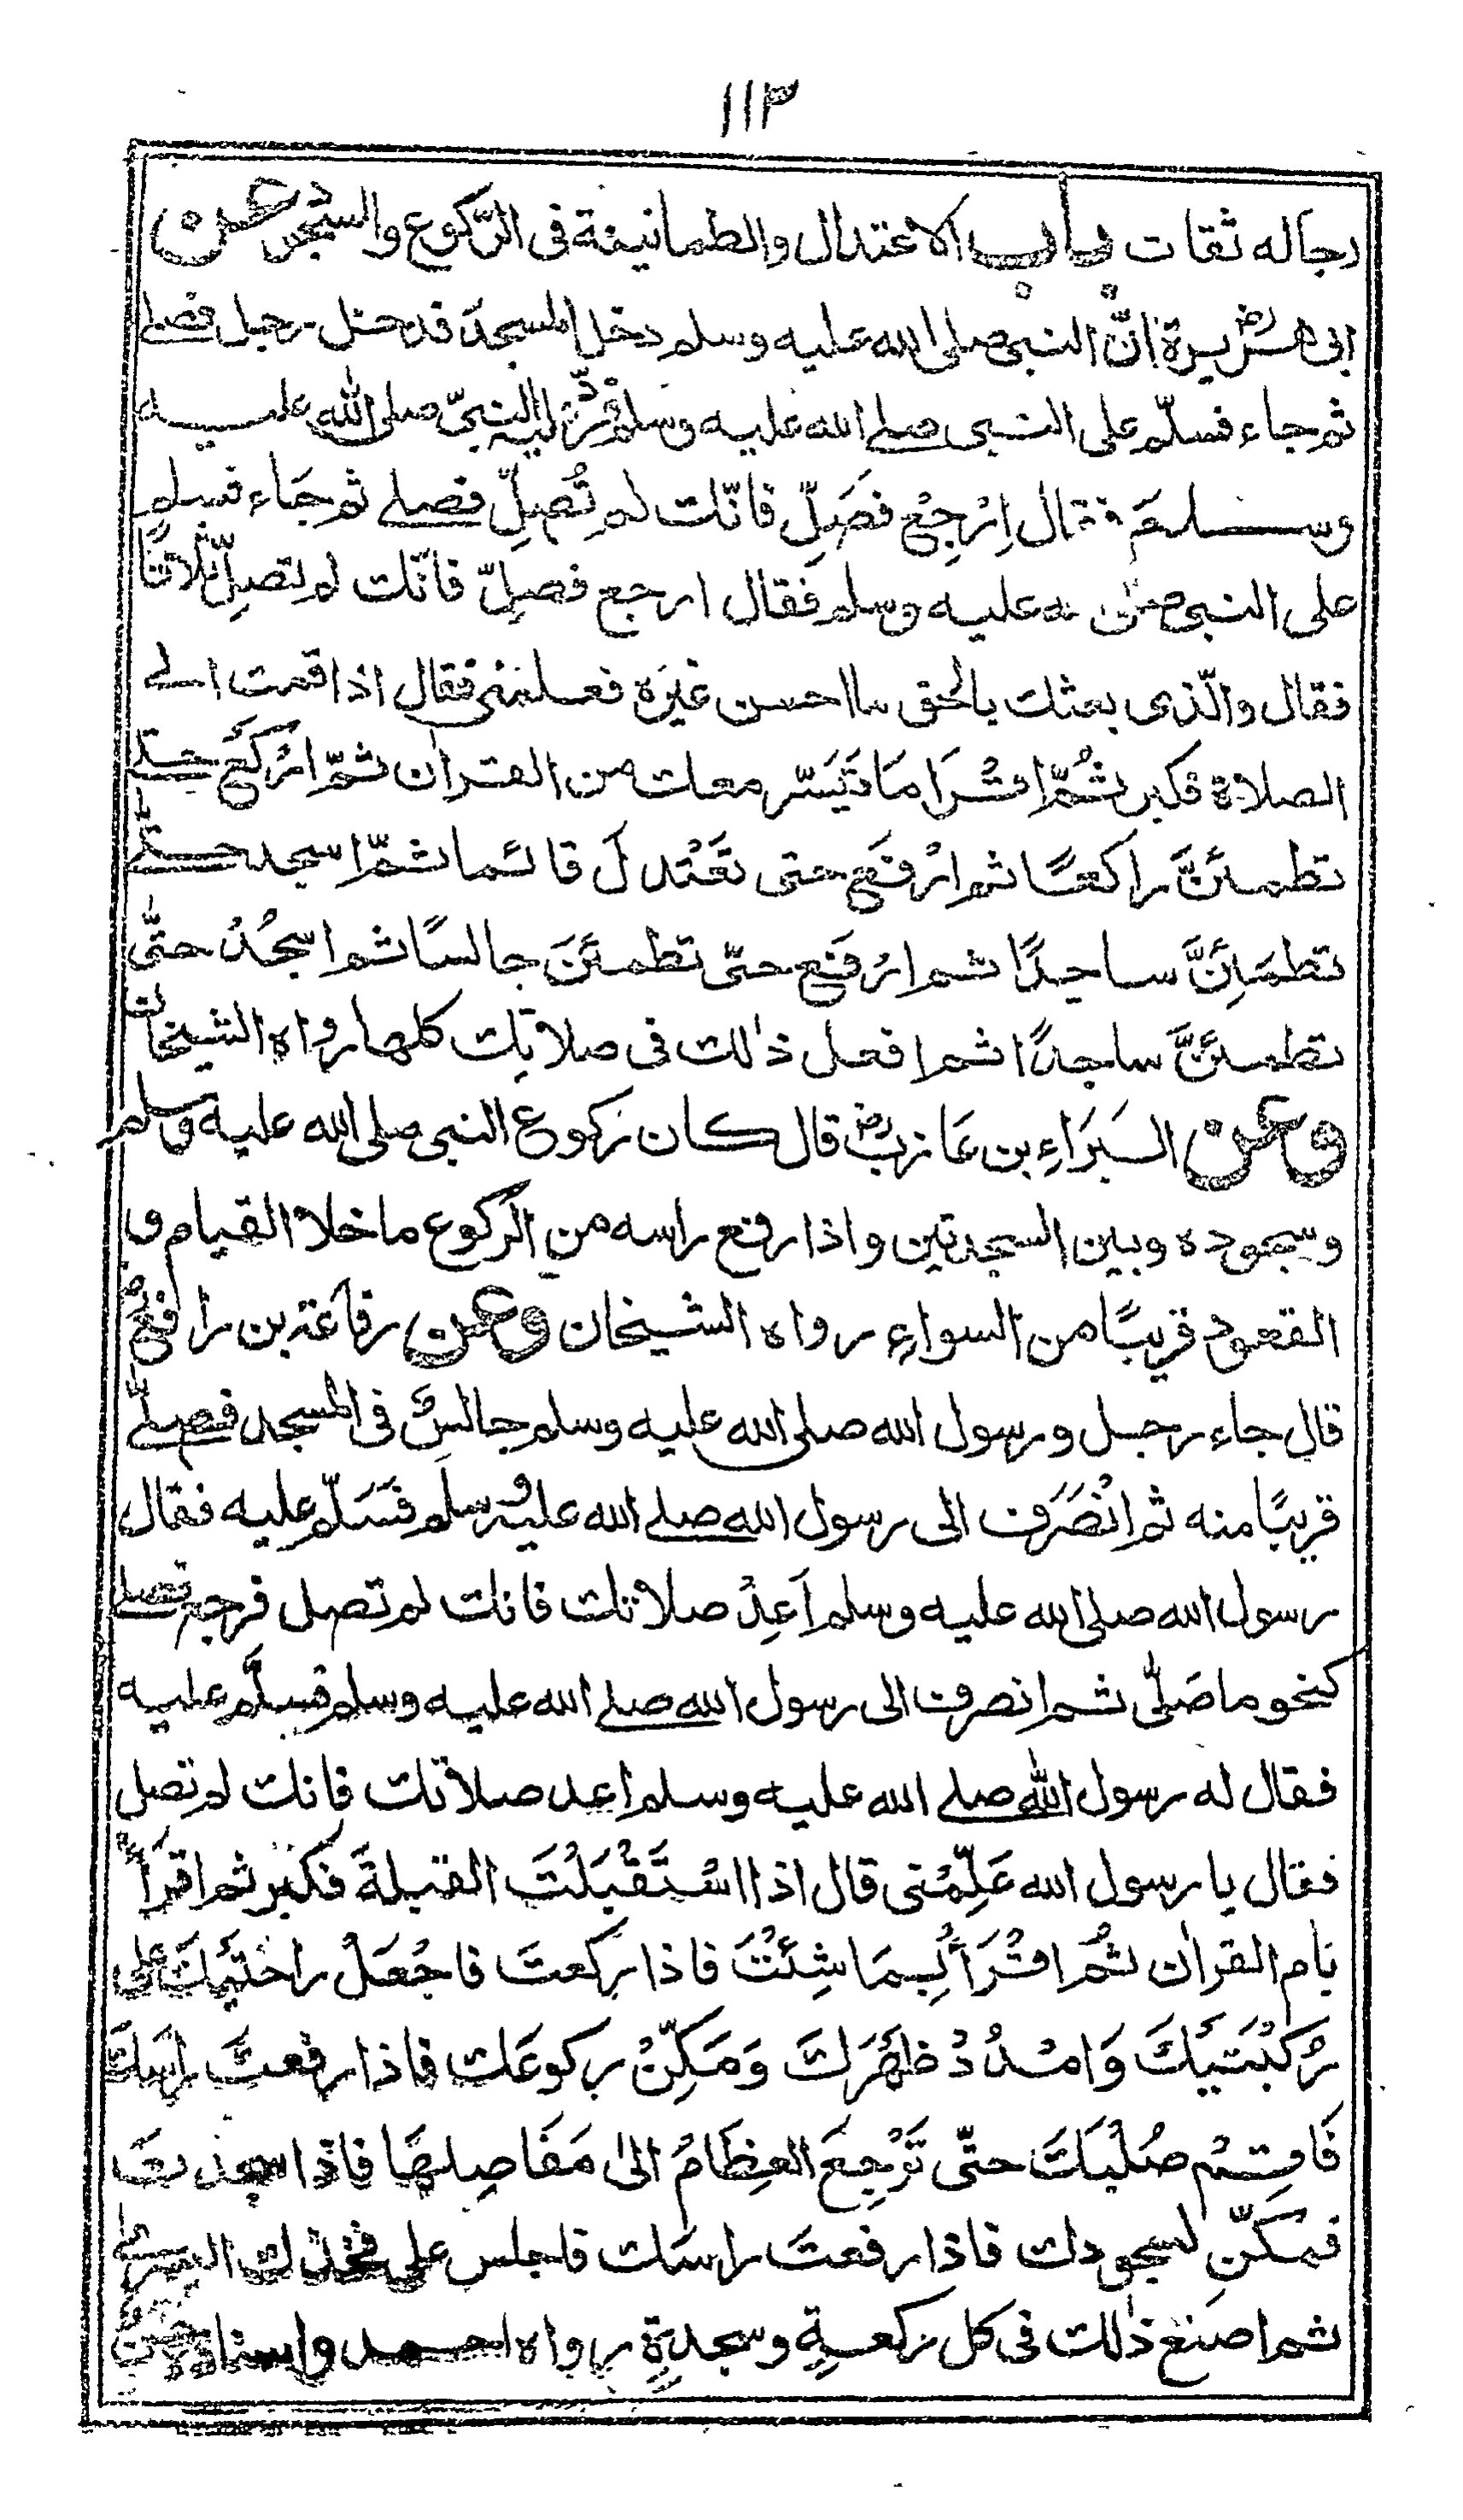 ١١٣
رجاله ثقات باب الاعتدال والطمانينة فى الرّكوع والسّجود عن
ابى هريرة رض انّ النبى صلى الله عليه وسلم دخل المسجد فدخل رجل فصلے
ثم جاء فسلّم على النبى صلے الله عليه وسلم فردّ اليه النبىّ صلى الله عليه
وسلم فقال اِرْجِعْ فصَلِّ فانّك لم تُصلِّ فصلے ثم جَاء فسلم
على النبى صلى الله عليه وسلم فقال ارجع فصلِّ فانّك لم تصلِّ ثلاثًا
فقال والّذى بعثك بالحق ما احسن غيرَه فعلمنى فقال اذا قمت الے
الصلاة فكبر ثُمّ اقْرَا مَا تَيَسّر معك من القران ثمّ ارْكَعْ حتے
تطمئنَّ راكعًا ثم ارْفَع حتى تَعْتدلَ قائما ثمّ اسجد حتّے
تطمَئِنَّ ساجدًا ثم ارْفَع حتّى تطمئنَ جالسًا ثم اسجُدْ حتّٰى
تطمئنَّ ساجدًا ثم افعل ذٰلك فى صلاتِك كلها رواه الشيخان
وعن البَرَاءِ بن عَازب رض قال كان ركوع النبى صلى الله عليه وسلم
وسجوده وبين السجدتين واذا رفع راسه من الركوع ما خلا القيام و
القعود قريبًا من السواءِ رواه الشيخان وعن رفاعة بن رافع رض
قال جاء رجل ورسول الله صلى الله عليه وسلم جالسٌ فى المسجد فصلّے
قريبًا منه ثم انْصَرَف الى رسول الله صلے الله عليه وسلم فسَلّم عليه فقال
رسول الله صلى الله عليه وسلم اَعِدْ صلاتك فانك لم تصل فرجع فصلے
كنحو ما صَلّٰى ثم انصرف الى رسول الله صلے الله عليه وسلم فسلَّم عليه
فقال له رسول الله صلے الله عليه وسلم اعد صلاتك فانك لم تصل
فقال يا رسول الله عَلِّمْنى قال اذا اسْتَقْبَلْتَ القبلةَ فكبر ثم اقرَأْ
بام القران ثُم اقْرَأْ بِمَا شِئْتَ فاذا ركعتَ فاجْعَلْ راحتَيْكَ على
رُكْبَتَيْكَ وَامْدُدْ ظَهْرَكَ وَمَكِّنْ ركوعَك فاذا رفعتَ راسَك
فَاقِمْ صُلْبَكَ حتّى تَرْجِعَ العِظَامُ الىٰ مَفَاصِلِهَا فاذا سجدتَ
فمَكّنِ لسجودك فاذا رفعتَ راسَك فاجلس على فخذك اليسرے
ثم اصنع ذٰلك فى كل ركعةٍ وسجدةٍ رواه احمد واسناده حسنٌ